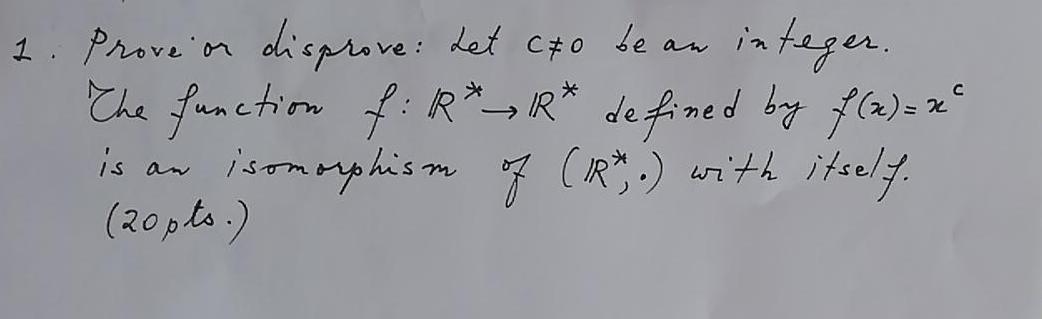 1. Prove or disprove: Let c≠0 be an integer.
The function f: ℝ* → ℝ* defined by f(x) = x^c
is an isomorphism of (ℝ*, ·) with itself.
(20 pts.)